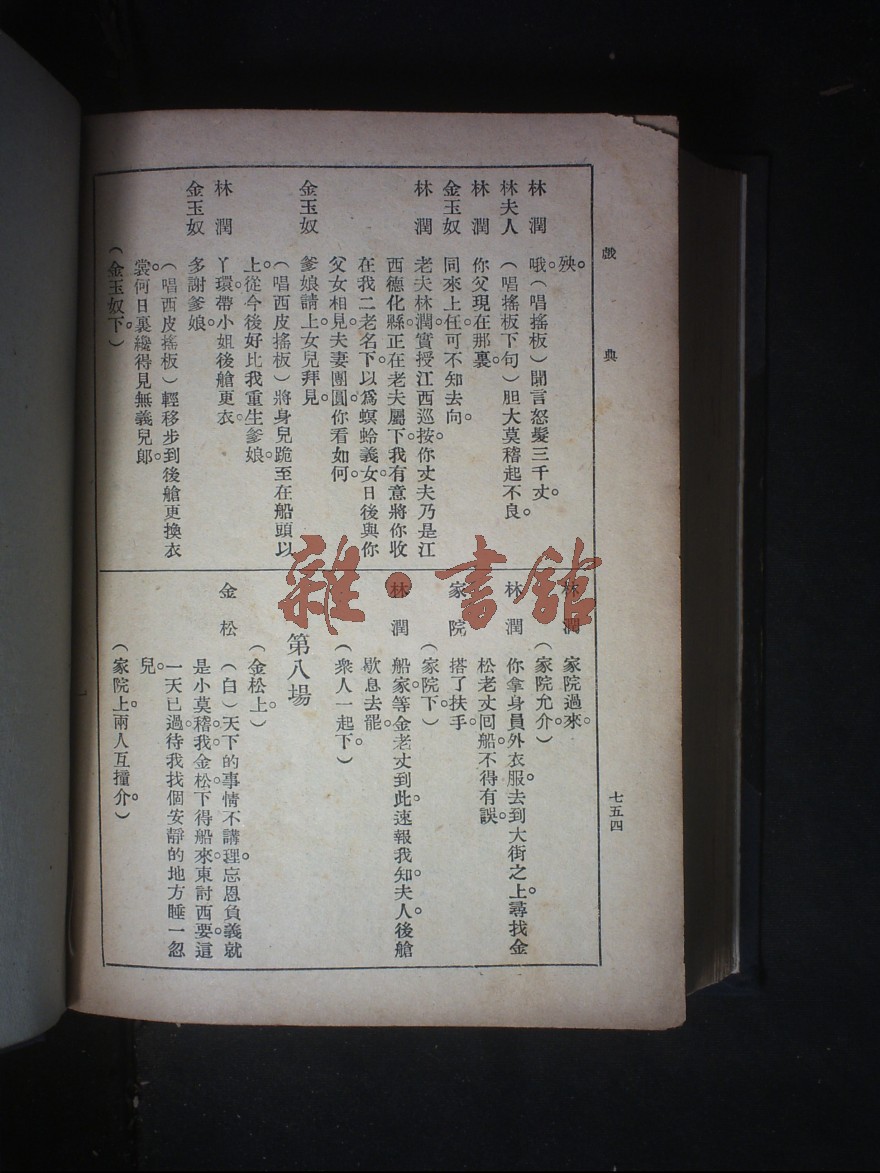 戲典
七五四
殃。
林潤 哦（唱搖板）聞言怒髮三千丈。
林夫人 （唱搖板下句）胆大莫稽起不良。
林潤 你父現在那裏。
金玉奴 同來上任可不知去向。
林潤 老夫林潤實授江西巡按。你丈夫乃是江
西德化縣正在老夫屬下。我有意將你收
在我二老名下。以爲螟蛉義女。日後與你
父女相見。夫妻團圓。你看如何。
金玉奴 爹娘請上。女兒拜見。
（唱西皮搖板）將身兒跪至在船頭以
上。從今後好比我重生爹娘。
林潤 丫環帶小姐後艙更衣。
金玉奴 多謝爹娘。
（唱西皮搖板）輕移步到後艙更換衣
裳。何日裏纔得見無義兒郎。
（金玉奴下。）
林潤 家院過來。
（家院允介。）
林潤 你拿身員外衣服。去到大街之上。尋找金
松老丈回船。不得有誤。
家院 搭了扶手。
（家院下）
林潤 船家等金老丈到此。速報我知。夫人。後艙
歇息去罷。
（衆人一起下）
第八場
（金松上）
金松 （白）天下的事情不講理。忘恩負義就
是小莫稽。我金松下得船來。東討西要。這
一天已過。待我找個安靜的地方睡一忽
兒。
（家院上。兩人互撞介。）
雜·書館